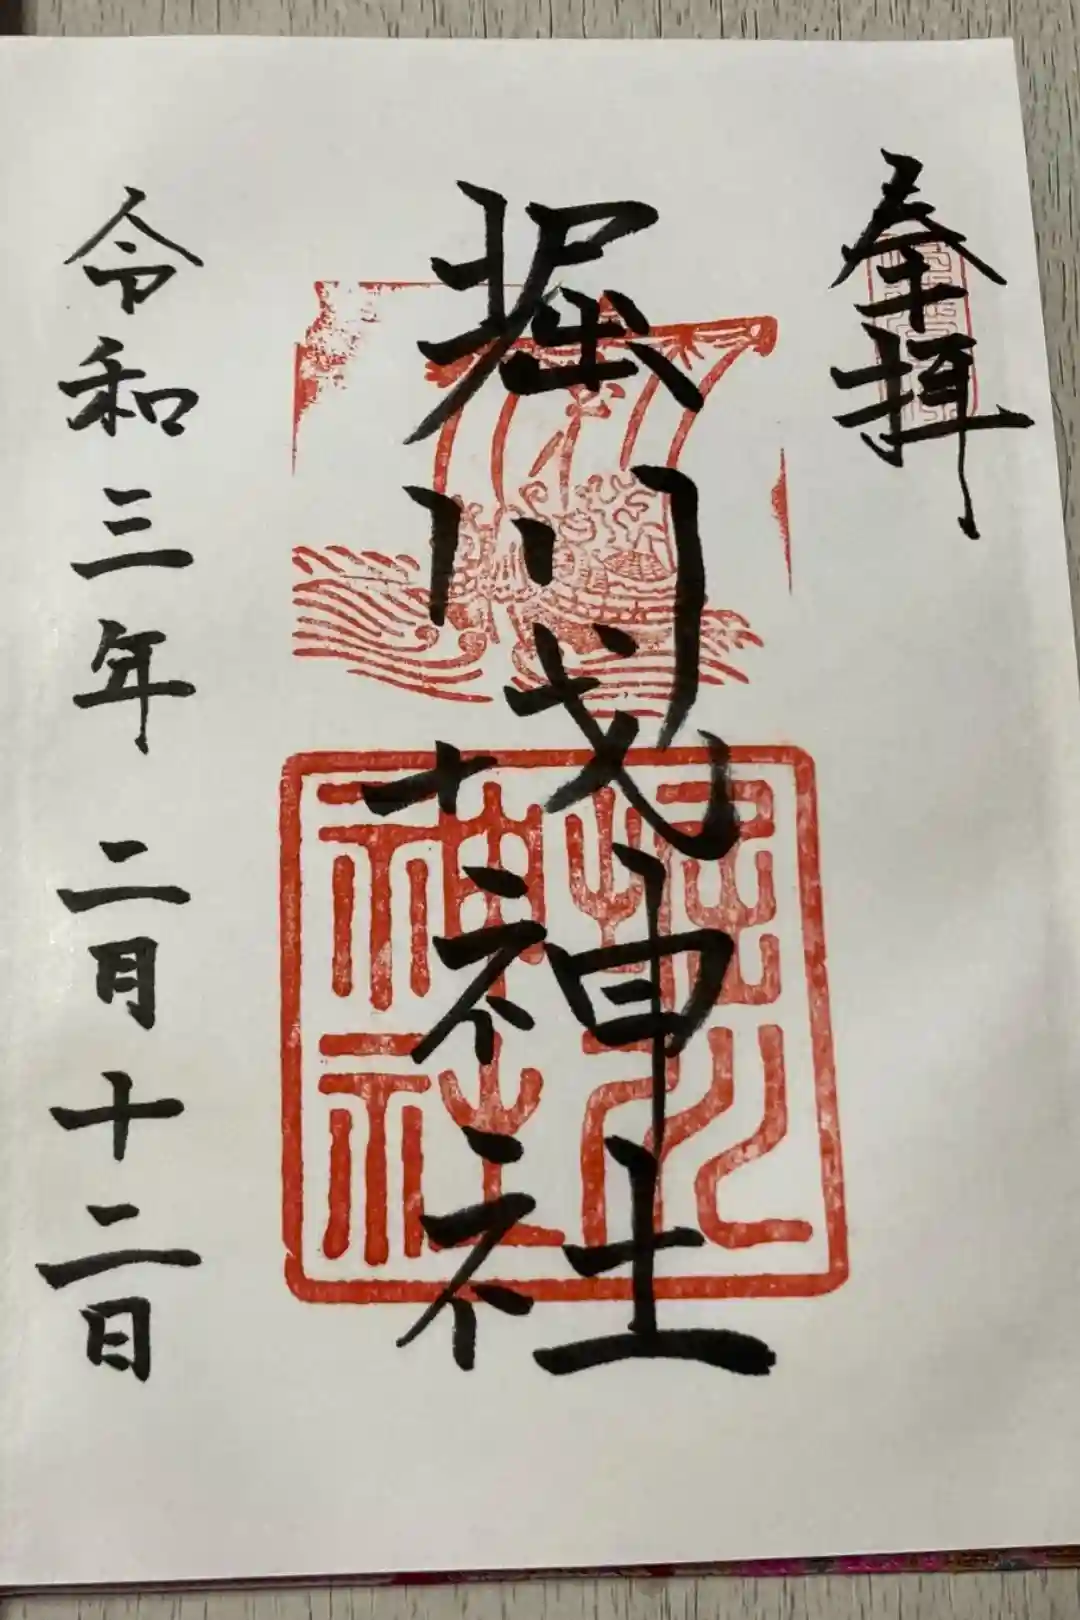 奉拝
堀川戎神社
令和三年二月十二日
堀川
神社